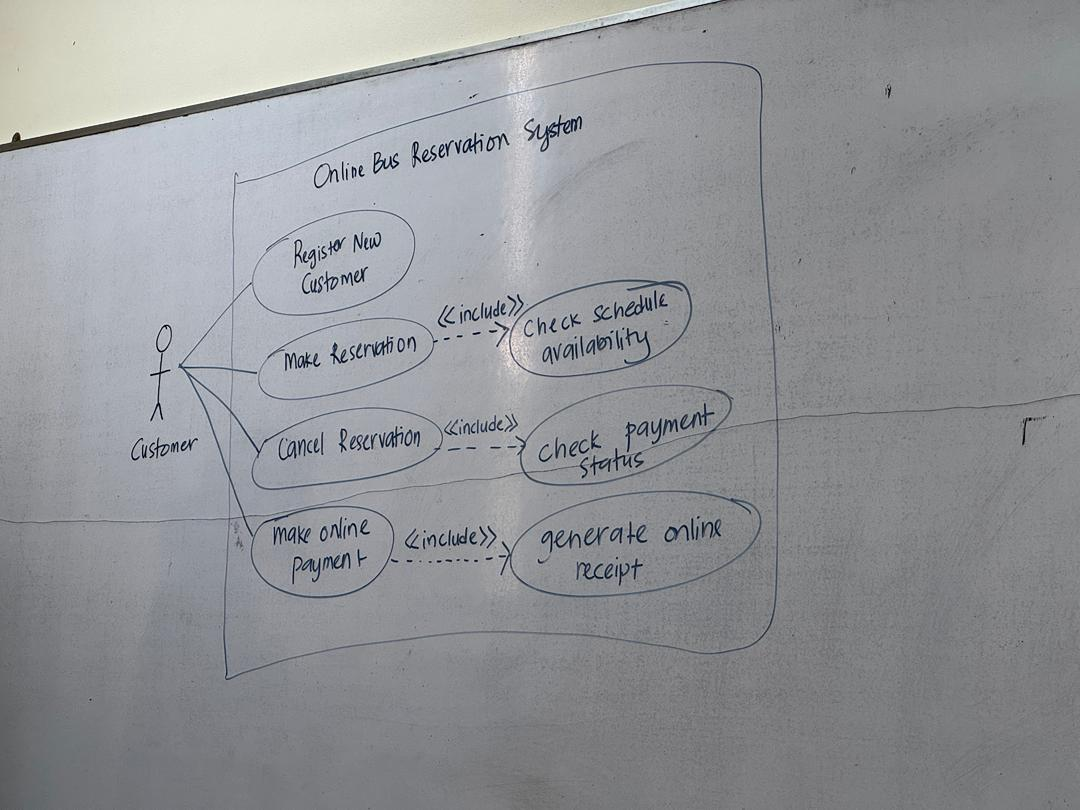 Online Bus Reservation System
Register New
Customer
Make Reservation
<<include>>
Check schedule
availability
Customer
Cancel Reservation
<<include>>
check payment
status
make online
payment
<<include>>
generate online
receipt